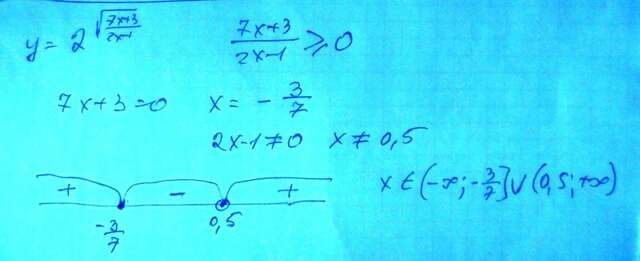 y = 2^√((7x+3)/(2x-1))    (7x+3)/(2x-1) ≥ 0
7x+3=0    x = -3/7
2x-1≠0    x ≠ 0,5
+    -    +    x ∈ (-∞; -3/7] ∪ (0,5; +∞)
-3/7    0,5